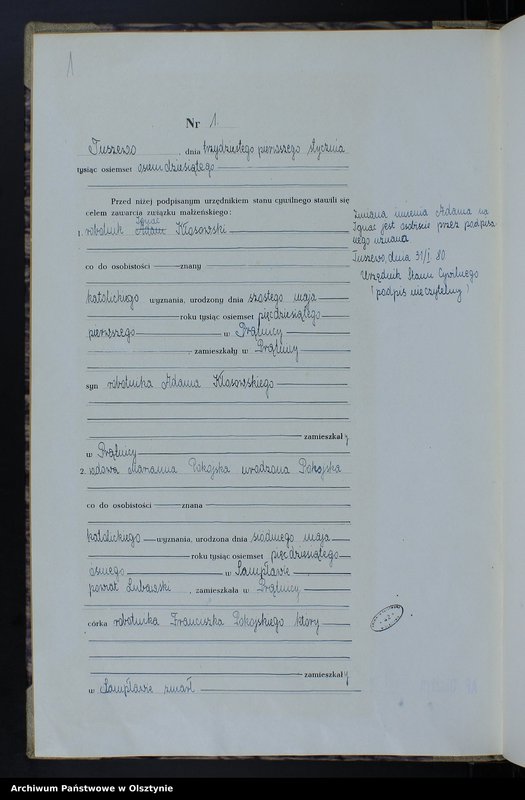 1
Nr 1.
Tuszewo, dnia trzydziestego pierwszego stycznia
tysiąc osiemset osiemdziesiątego
Przed niżej podpisanym urzędnikiem stanu cywilnego stawili się
celem zawarcia związku małżeńskiego:
Ignac
1. robotnik Adam Kłosowski
co do osobistości znany
katolickiego wyznania, urodzony dnia szóstego maja
roku tysiąc osiemset pięćdziesiątego
pierwszego w Prątnicy
, zamieszkały w Prątnicy
syn robotnika Adama Kłosowskiego
zamieszkały
w Prątnicy
2. wdowa Marianna Pokojska urodzona Pokojska
co do osobistości znana
katolickiego wyznania, urodzona dnia siódmego maja
roku tysiąc osiemset pięćdziesiątego
ósmego w Sampławie
powiat Lubawski, zamieszkała w Prątnicy
córka robotnika Franciszka Pokojskiego który
zamieszkały
w Sampławie zmarł
Zmiana imienia Adama na
Ignac jest osobiście przez podpisa
nego uznana
Tuszewo, dnia 31/I 80
Urzędnik Stanu Cywilnego
(podpis nieczytelny)
Archiwum Państwowe w Olsztynie